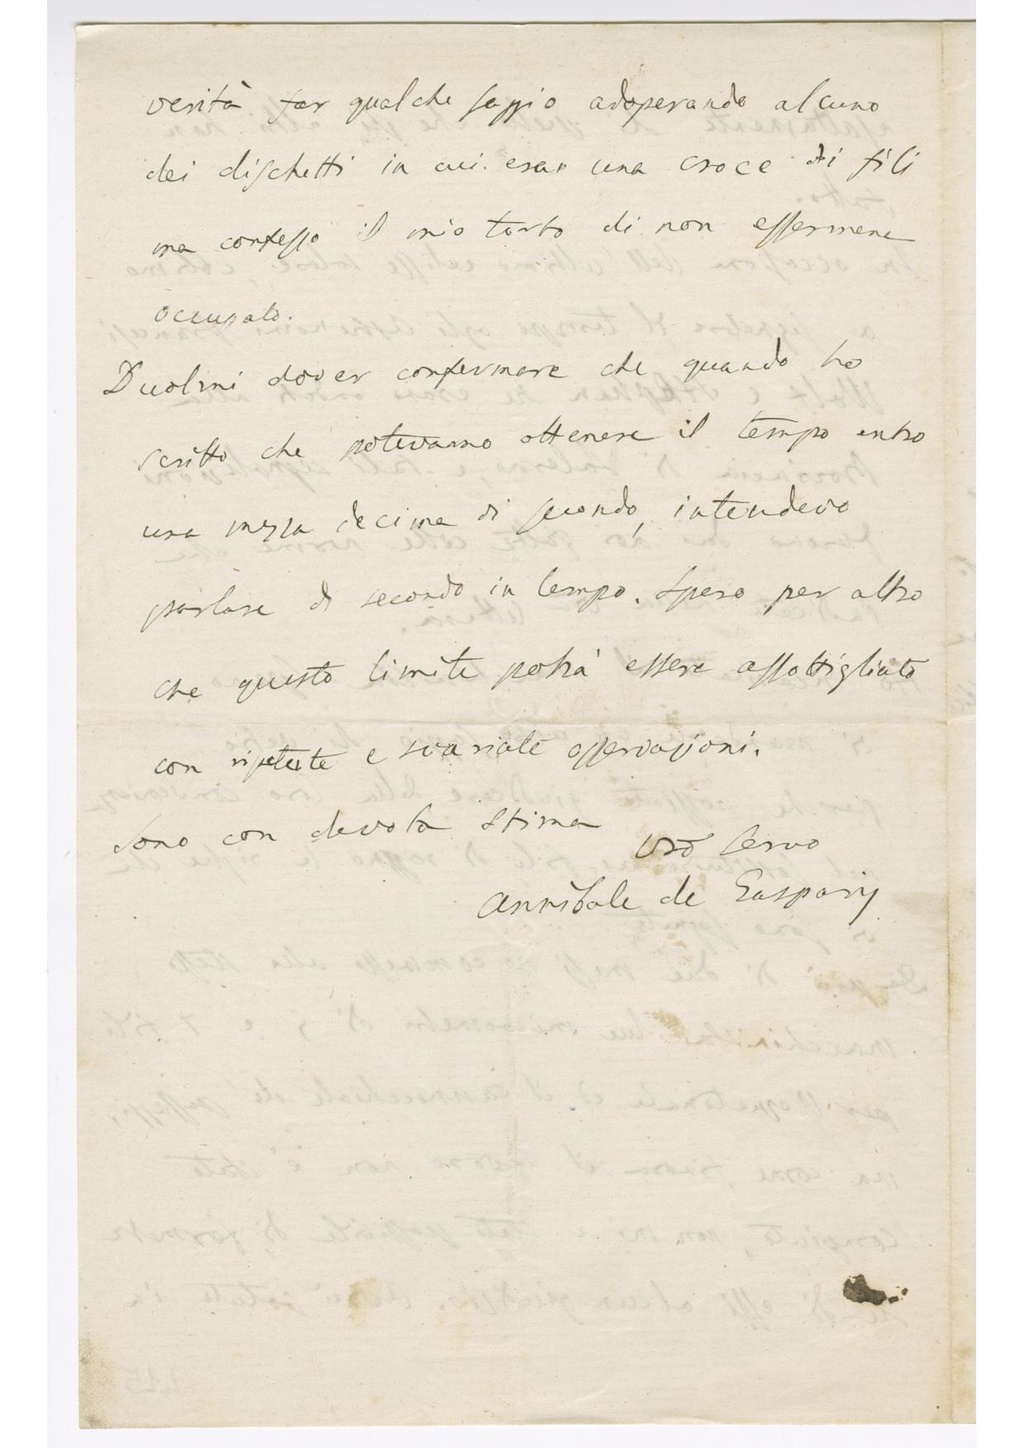 verità far qualche saggio adoperando alcuno
dei dischetti in cui eran una croce di fili
ma confesso il mio torto di non essermene
occupato.
Duolmi dover confermare che quando ho
scritto che potevamo ottenere il tempo entro
una mezza decima di secondo, intendevo
parlare di secondo in tempo. Spero per altro
che questo limite potrà essere assottigliato
con ripetute e svariate osservazioni.
Sono con devota stima
Vro Servo
Annibale de Gasparis